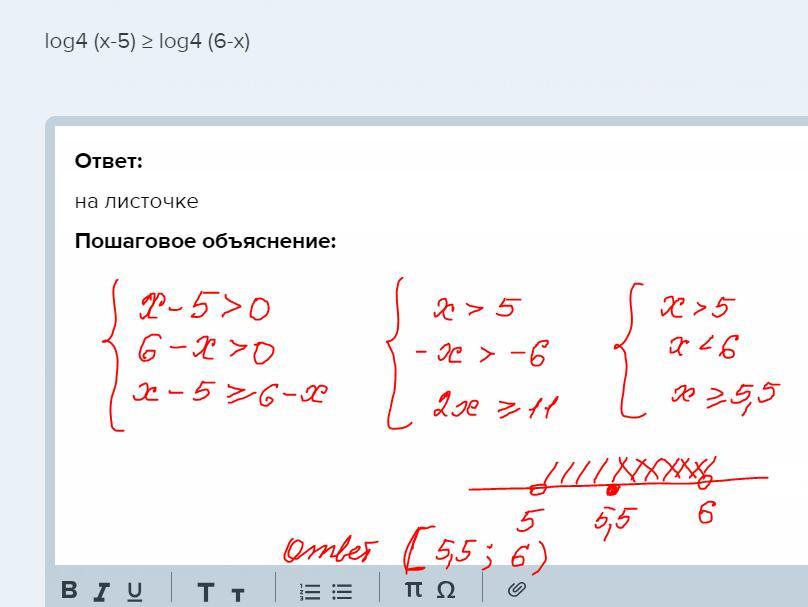 log4 (x-5) ≥ log4 (6-x)
Ответ:
на листочке
Пошаговое объяснение:
x - 5 > 0
6 - x > 0
x - 5 ≥ 6 - x
x > 5
- x > -6
2x ≥ 11
x > 5
x < 6
x ≥ 5,5
5 5,5 6
ответ [5,5; 6)
B I U T т π Ω